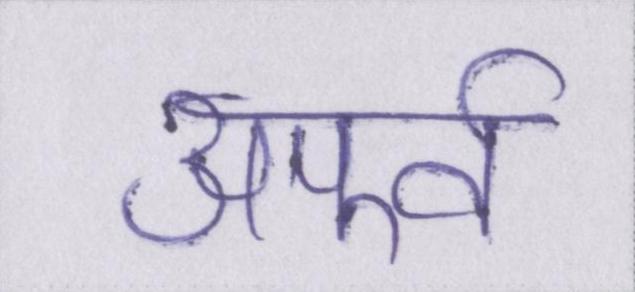 अपूर्व